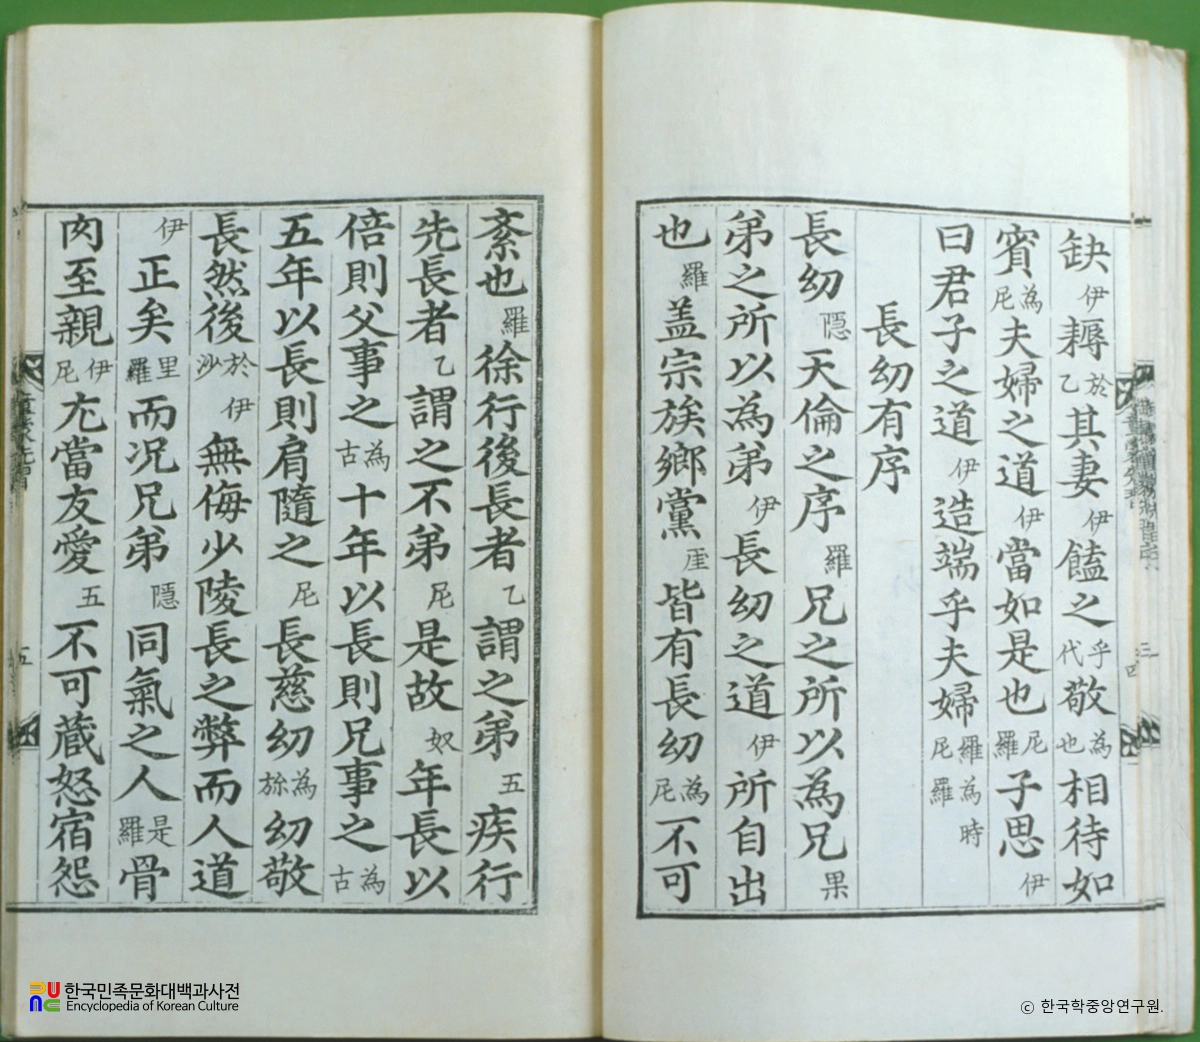 缺伊耨於乙其妻伊饁之乎代敬為也相待如
賓為尼夫婦之道伊當如是也尼羅子思伊
曰君子之道伊造端乎夫婦羅為尼羅時
長幼有序
長幼隱天倫之序羅兄之所以為兄果
弟之所以為弟伊長幼之道伊所自出
也羅盖宗族鄉黨厓皆有長幼為尼不可
紊也羅徐行後長者乙謂之弟五疾行
先長者乙謂之不弟尼是故奴年長以
倍則父事之為古十年以長則兄事之為古
五年以長則肩隨之尼長慈幼為旀幼敬
長然後於沙伊無侮少陵長之弊而人道
伊正矣里羅而况兄弟隱同氣之人是羅骨
肉至親伊尼尤當友愛五不可藏怒宿怨
한국민족문화대백과사전
Encyclopedia of Korean Culture
© 한국학중앙연구원.